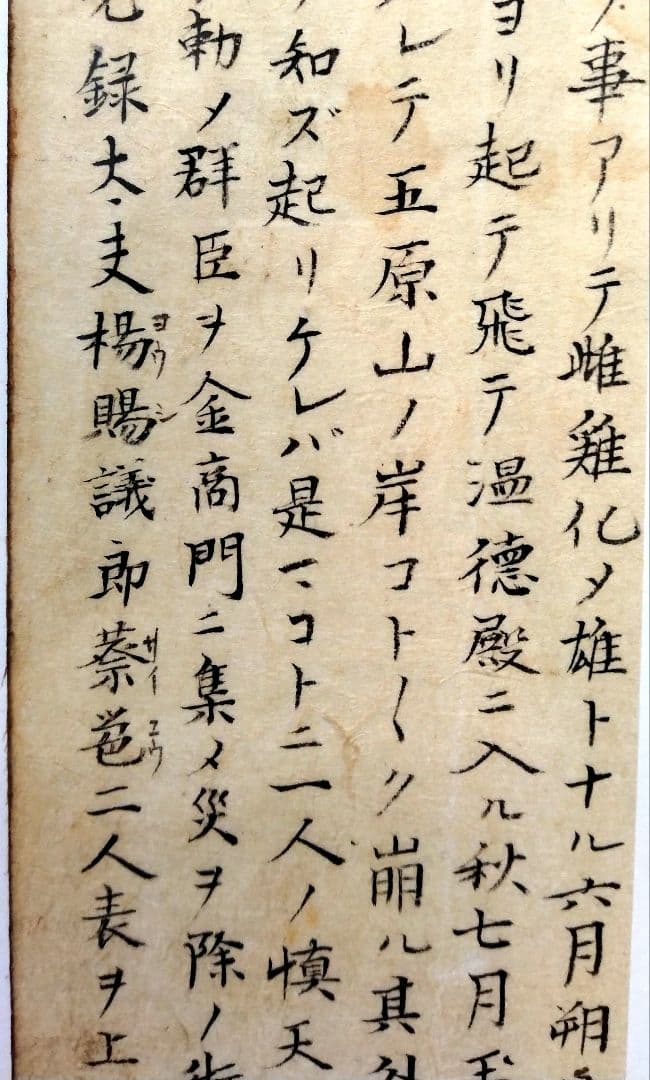 事アリテ雌雞化メ雄トナル六月朔
ヨリ起テ飛テ温德殿ニ入ル秋七月
レテ五原山ノ岸コト〱ク崩ル其外
知ズ起リケレバ是マコトニ一人ノ慎天
勅メ群臣ヲ金商門ニ集メ災ヲ除ノ術
光録大夫楊賜議郎蔡邕二人表ヲ上
ヨウシ
サイヨウ